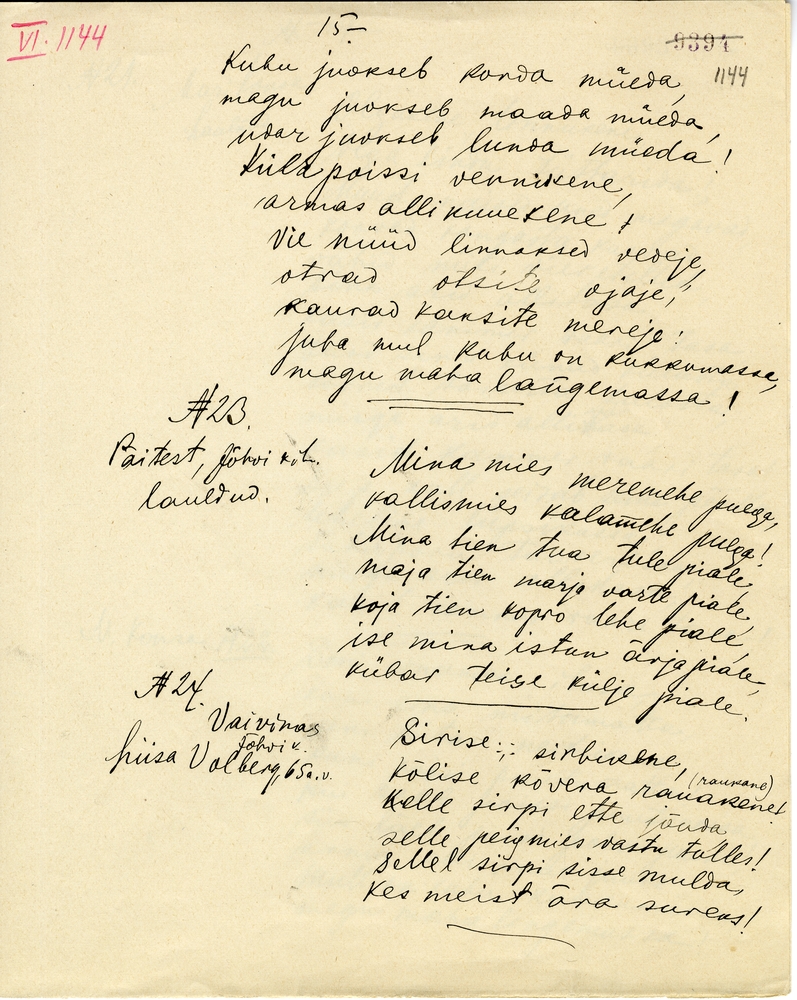 VI. 1144
15-
9394
1144
Kubu juokseb korda müeda,
magu juokseb maada müeda,
udar juokseb lunda müeda!
Külä poissi vennikene,
armas allikuuekene!
Vie nüüd linnaksed vedeje,
otrad otsite ojaje,
kaurad kaksite mereje!
Juba mul kubu on kukkumassa,
magu maha langemassa!
№ 23.
Päitest, Jõhvi kih.
lauldud.
Mina mies meremehe puega,
kallismies kalamehe puega!
Mina tien tua tule piale,
maja tien marja varte piale,
koja tien kopro lehe piale,
ise mina istun ärja piale,
kübar teise külje piale.
№ 24.
Vaivinas
Jõhvi k.
Liisa Volberg, 65 a. v.
Sirise:,: sirbikene,
Kõlise kõvera rauakene! (raukane)
Kelle sirpi ette jõuda
selle peigmies vastu tulles!
Sellel sirpi sisse mulda,
Kes meist ära sureks!